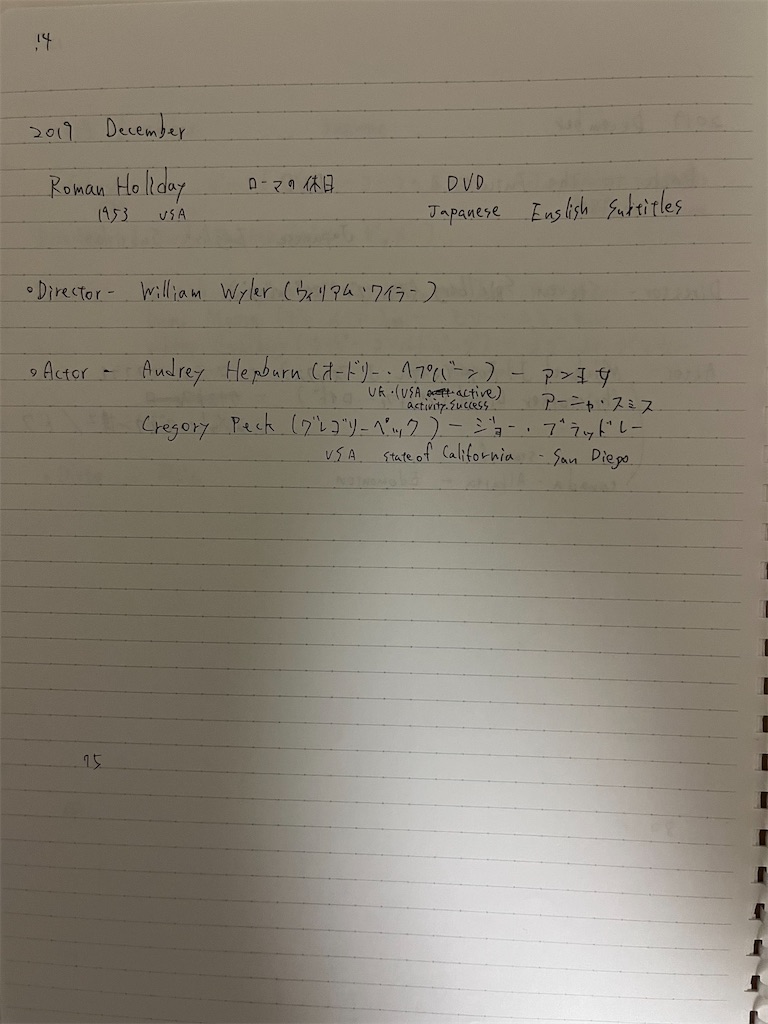 14
2019 December
Roman Holiday ローマの休日 DVD
1953 USA Japanese English Subtitles
• Director - William Wyler (ウィリアム・ワイラー)
• Actor - Audrey Hepburn (オードリー・ヘプバーン) - アン王女
UK・(USA active)
activity.success アーニャ・スミス
Cregory Peck (グレゴリーペック) - ジョー・ブラッドレー
USA state of California - San Diego
75